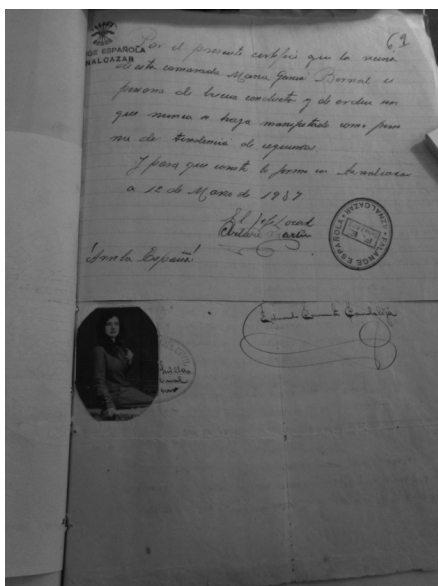 69
GE ESPAÑOLA
NALCAZAR
Por el presente certifico que la
de esta camarada Maria Garcia Bernal es
persona de buena conducta y de orden sin
que nunca se haya manifestado como
de tendencia de izquierdas.
Y para que conste lo firmo en Aznalcazar
a 12 de Marzo de 1937
El Jefe Local
Martin
¡Arriba España!
FALANGE ESPAÑOLA AZNALCAZAR
Eduardo